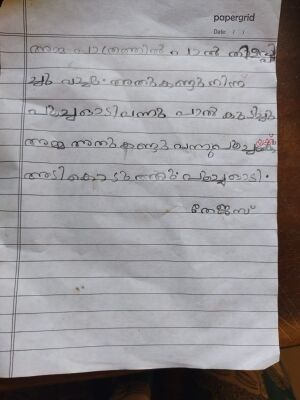 papergrid
Date: / /
അമ്മ പാത്രത്തിൽ പാൽ തിളപ്പി
ച്ചു വച്ചു. അതുകണ്ടു നിന്ന
പൂച്ച ഓടി വന്നു പാൽ കുടിച്ചു
അമ്മ അതു കണ്ടു വന്നു പൂച്ചക്ക്
അടി കൊടുത്തു. പൂച്ച ഓടി.
തേജസ്